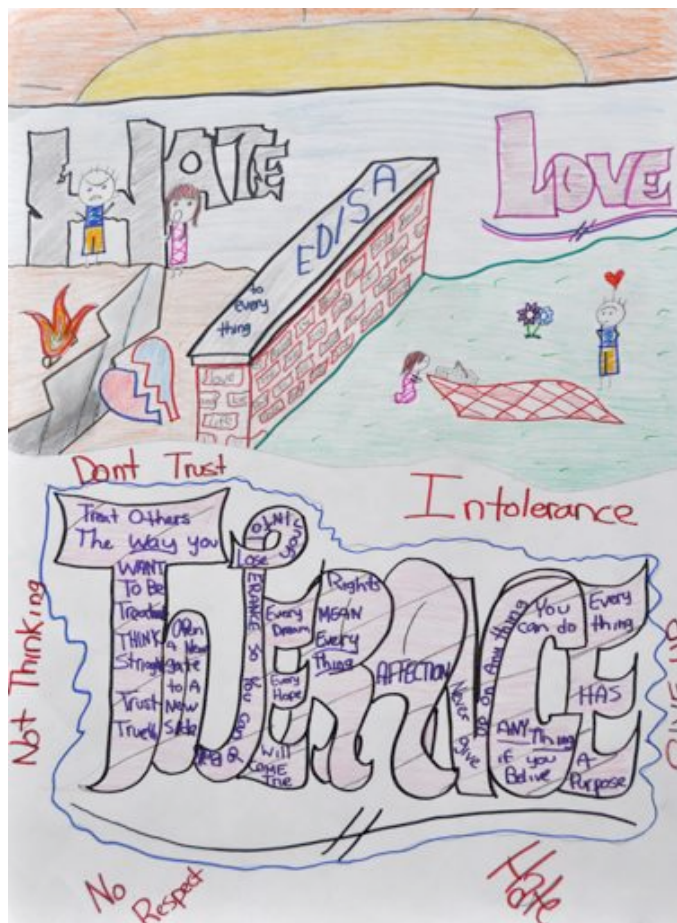 HATE
LOVE
EDISA
to
every
thing
love
Life
Dont Trust
Intolerance
Not Thinking
Treat Others
The Way you
WANT
To Be
Treated
THINK
Straight
Trust
Truely
OPEN
A New
gate
to A
New
Side
Lose
your
ERANCE so You can
Every
Dream
Every
Hope
Will
COME
True
Rights
MEAN
Every
Thing
AFFECTION
Never give
up on Any thing
You
can do
ANY-Thing
if you
Belive
Every
thing
HAS
A
Purpose
No
Respect
Hate